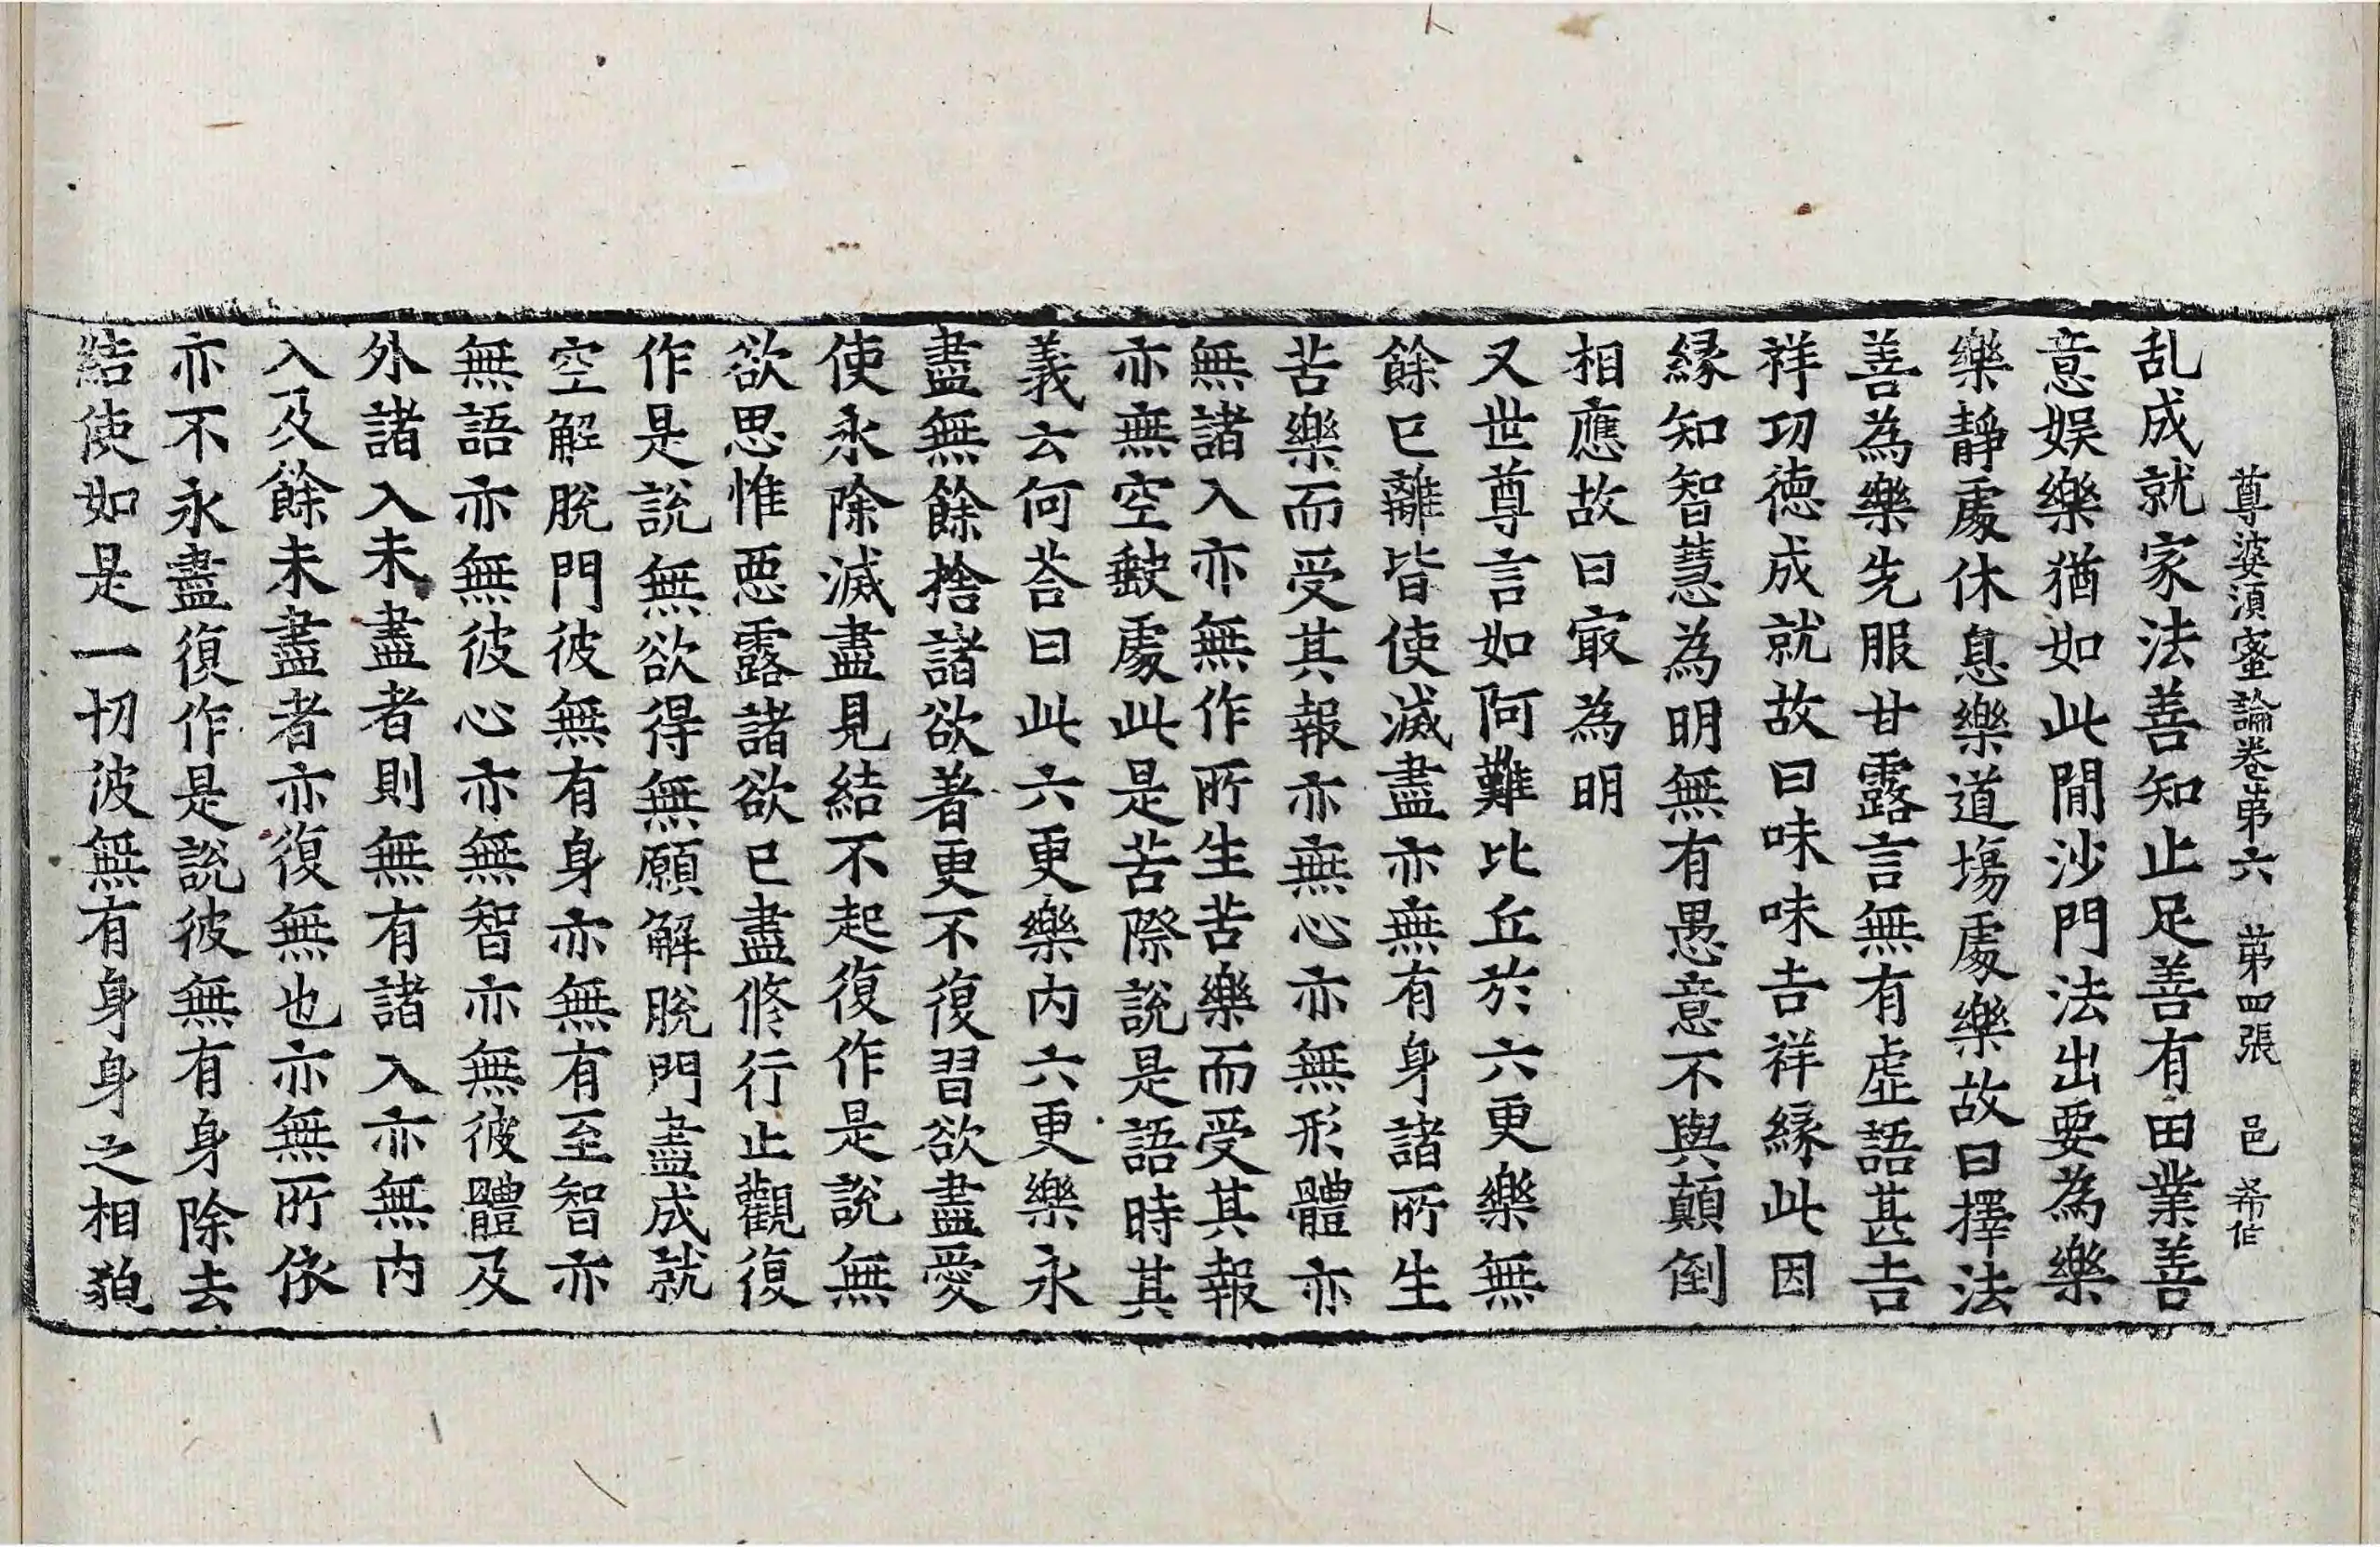 尊婆須蜜論卷苐六　苐四張　邑　希作
乱成就家法善知止足善有田業善
意娯樂猶如此閒沙門法出要為樂
樂靜處休息樂道塲處樂故曰擇法
善為樂先服甘露言無有虛語甚吉
祥㓛德成就故曰味味吉祥縁此因
縁知智慧為明無有愚意不與顛倒
相應故曰㝡為明
又世尊言如阿難比丘於六更樂無
餘已離皆使滅盡亦無有身諸所生
苦樂而受其報亦無心亦無形體亦
無諸入亦無作所生苦樂而受其報
亦無空缺處此是苦際說是語時其
義云何荅曰此六更樂內六更樂永
盡無餘捨諸欲著更不復習欲盡愛
使永除滅盡見結不起復作是說無
欲思惟惡露諸欲已盡修行止觀復
作是說無欲得無願解脫門盡成就
空解脫門彼無有身亦無有至智亦
無語亦無彼心亦無智亦無彼體及
外諸入未盡者則無有諸入亦無内
入及餘未盡者亦復無也亦無所依
亦不永盡復作是說彼無有身除去
結使如是一切彼無有身身之相貌